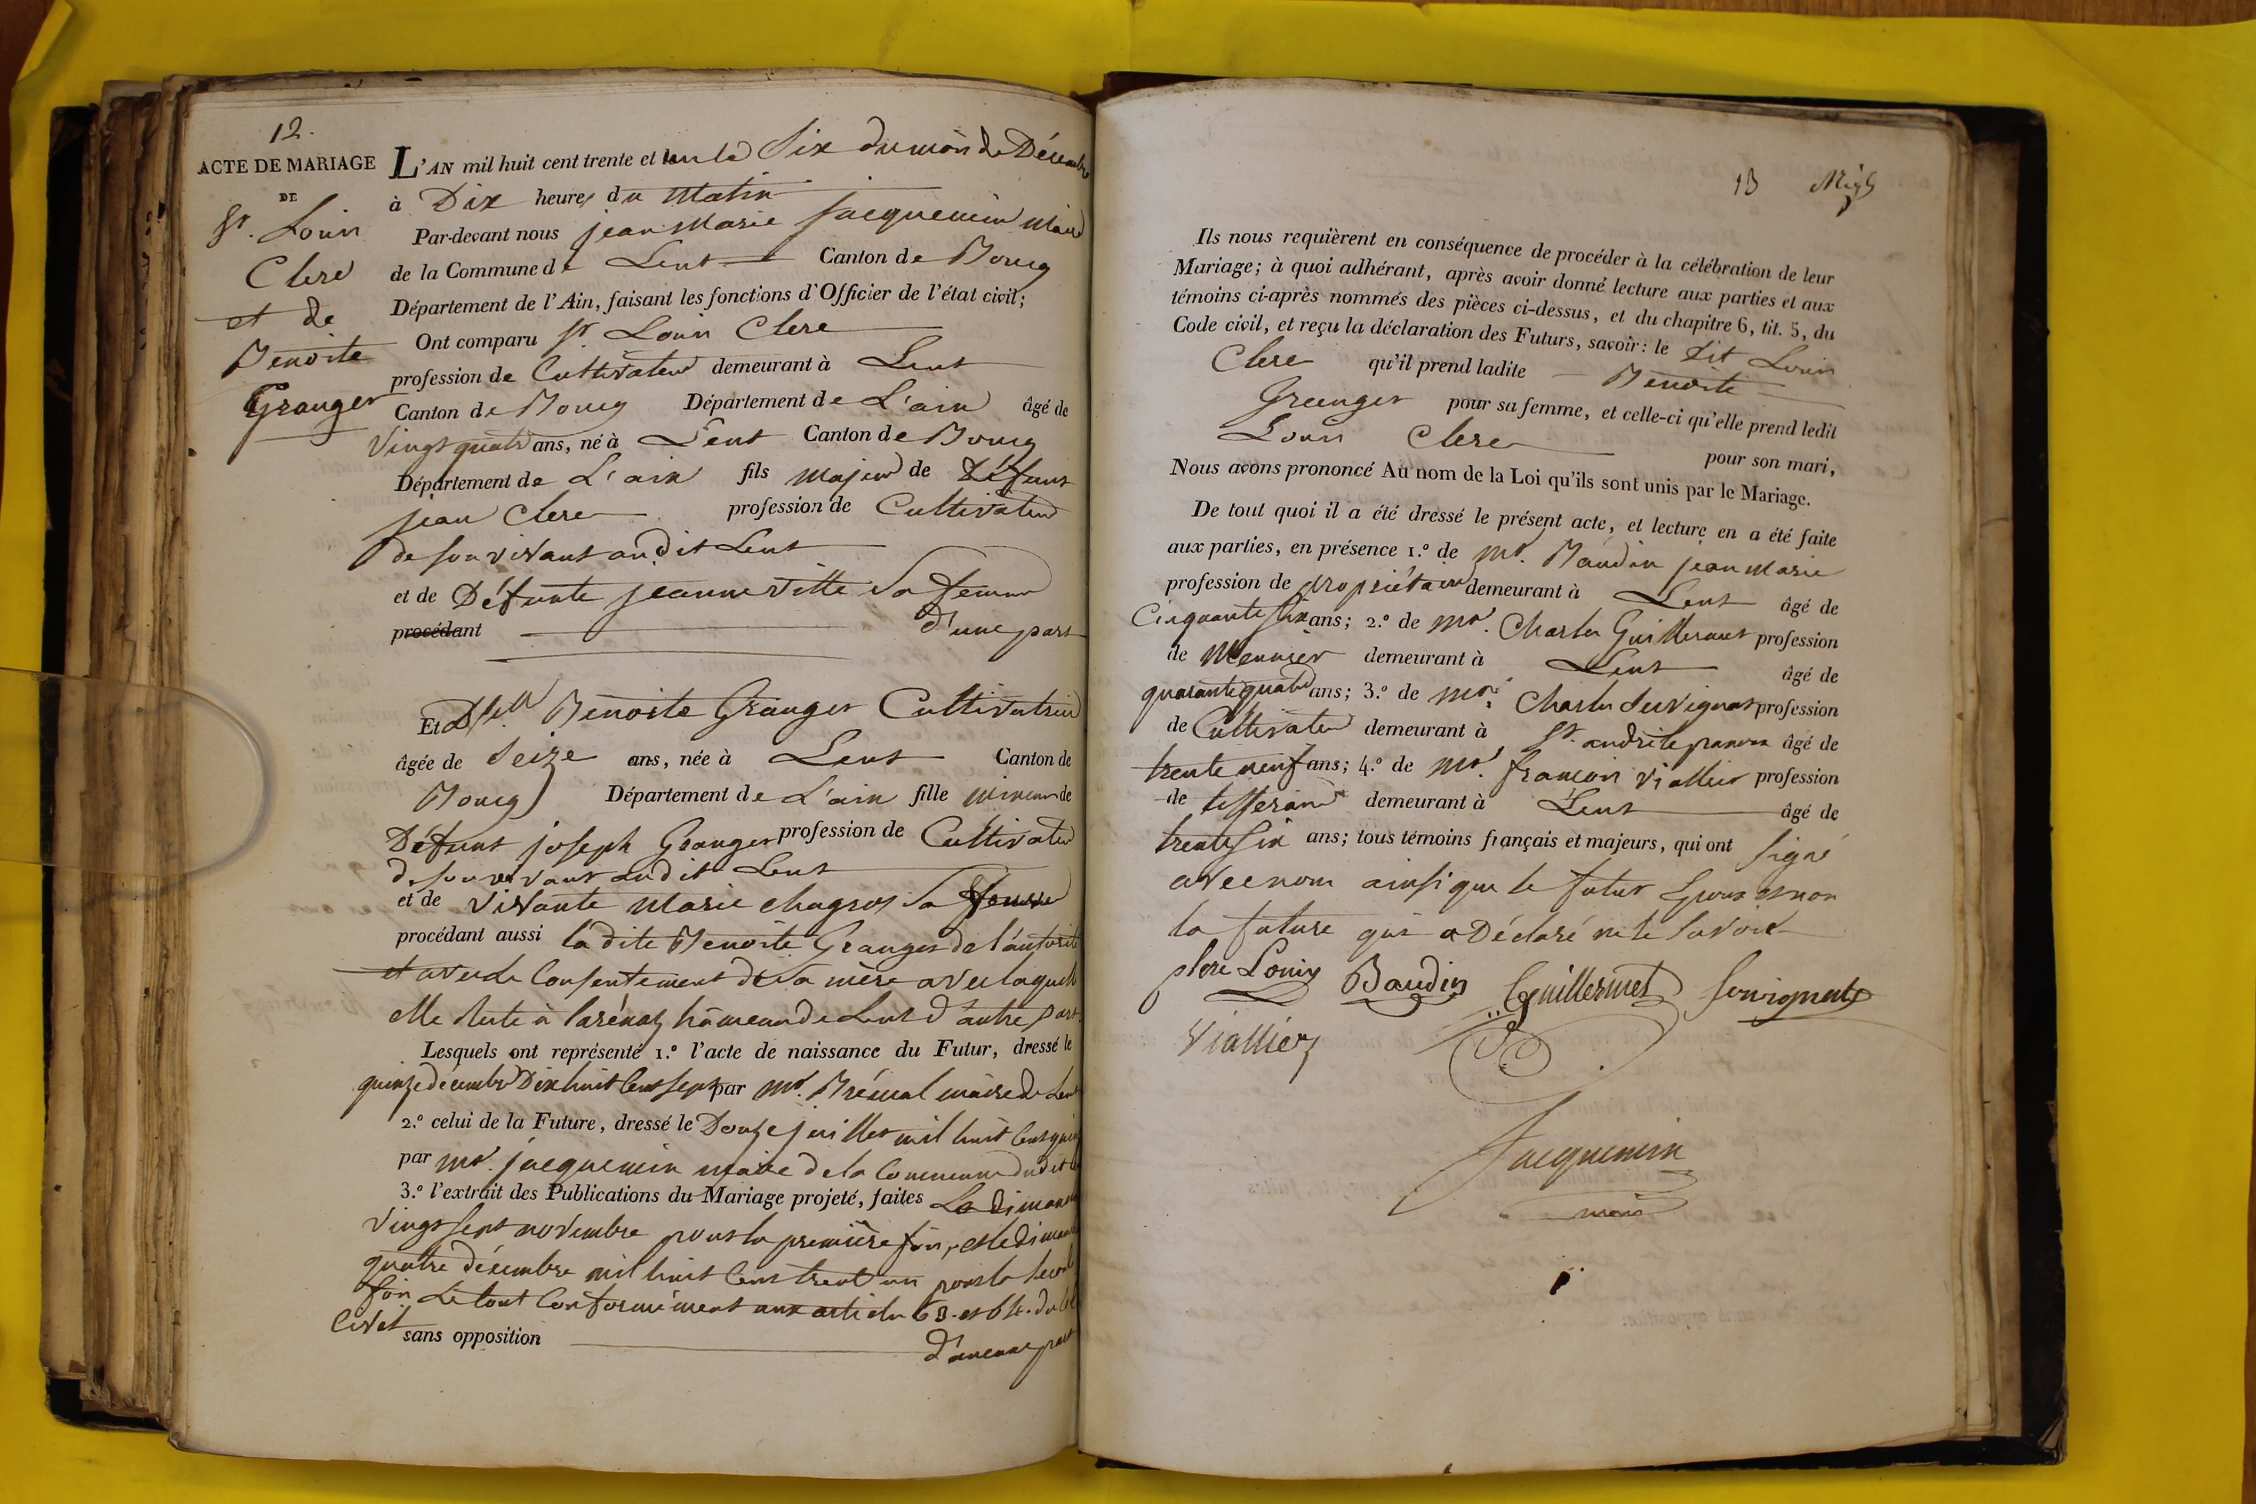 12.
ACTE DE MARIAGE
DE
Sr. Louis
Clere
et de
Benoite
Granger
L'AN mil huit cent trente et un le Six du mois de Décembre
à Dix heures du Matin
Par-devant nous jean Marie Jacquemin Maire
de la Commune de Lent Canton de Bourg
Département de l'Ain, faisant les fonctions d'Officier de l'état civil;
Ont comparu Sr. Louis Clere
profession de Cultivateur demeurant à Lent
Canton de Bourg Département de L'ain âgé de
Vingt quatre ans, né à Lent Canton de Bourg
Département de L'ain fils majeur de Défunt
jean Clere profession de Cultivateur
de son vivant au dit Lent
et de Défunte jeanne Ville Sa femme
procédant d'une part
Et Dlle. Benoite Granger Cultivatrice
âgée de Seize ans, née à Lent Canton de
Bourg Département de L'ain fille mineure de
Défunt joseph Granger profession de Cultivateur
de son vivant audit Lent
et de vivante Marie chagros Sa femme
procédant aussi la dite Benoite Granger de l'autorité
et avec le Consentement de Sa mère avec laquelle
elle reste à hameau de Lent d'autre part.
Lesquels ont représenté 1.º l'acte de naissance du Futur, dressé le
quinze décembre Dix huit Cent Sept par Mr. maire de Lent
2.º celui de la Future, dressé le Douze juillet mil huit Cent quinze
par Mr. jacquemin maire de la Commune dudit
3.º l'extrait des Publications du Mariage projeté, faites Le Dimanche
Vingt Sept novembre pour la première fois, et le dimanche
quatre décembre mil huit Cent trent un pour la Seconde
fois Le tout Conformément aux articles 63. et 64. du Code
Civil sans opposition d'aucune part
13
Ils nous requièrent en conséquence de procéder à la célébration de leur
Mariage; à quoi adhérant, après avoir donné lecture aux parties et aux
témoins ci-après nommés des pièces ci-dessus, et du chapitre 6, tit. 5, du
Code civil, et reçu la déclaration des Futurs, savoir: le dit Louis
Clere qu'il prend ladite Benoite
Granger pour sa femme, et celle-ci qu'elle prend ledit
Louis Clere pour son mari,
Nous avons prononcé Au nom de la Loi qu'ils sont unis par le Mariage.
De tout quoi il a été dressé le présent acte, et lecture en a été faite
aux parties, en présence 1.º de Mr. Baudin jean Marie
profession de propriétaire demeurant à Lent âgé de
Cinquante Six ans; 2.º de Mr. Charles Guillermet profession
de Meunier demeurant à Lent âgé de
quarante quatre ans; 3.º de Mr. Charles Suvignat profession
de Cultivateur demeurant à St. andré le panoux âgé de
trente neuf ans; 4.º de Mr. françois Viallier profession
de tisserand demeurant à Lent âgé de
trente Six ans; tous témoins français et majeurs, qui ont Signé
avec nous ainsi que le futur Epoux et non
la future qui a Déclaré ne le Savoir
Clere Louis Baudin Guillermet Suvignat
Viallier
Jacquemin
maire